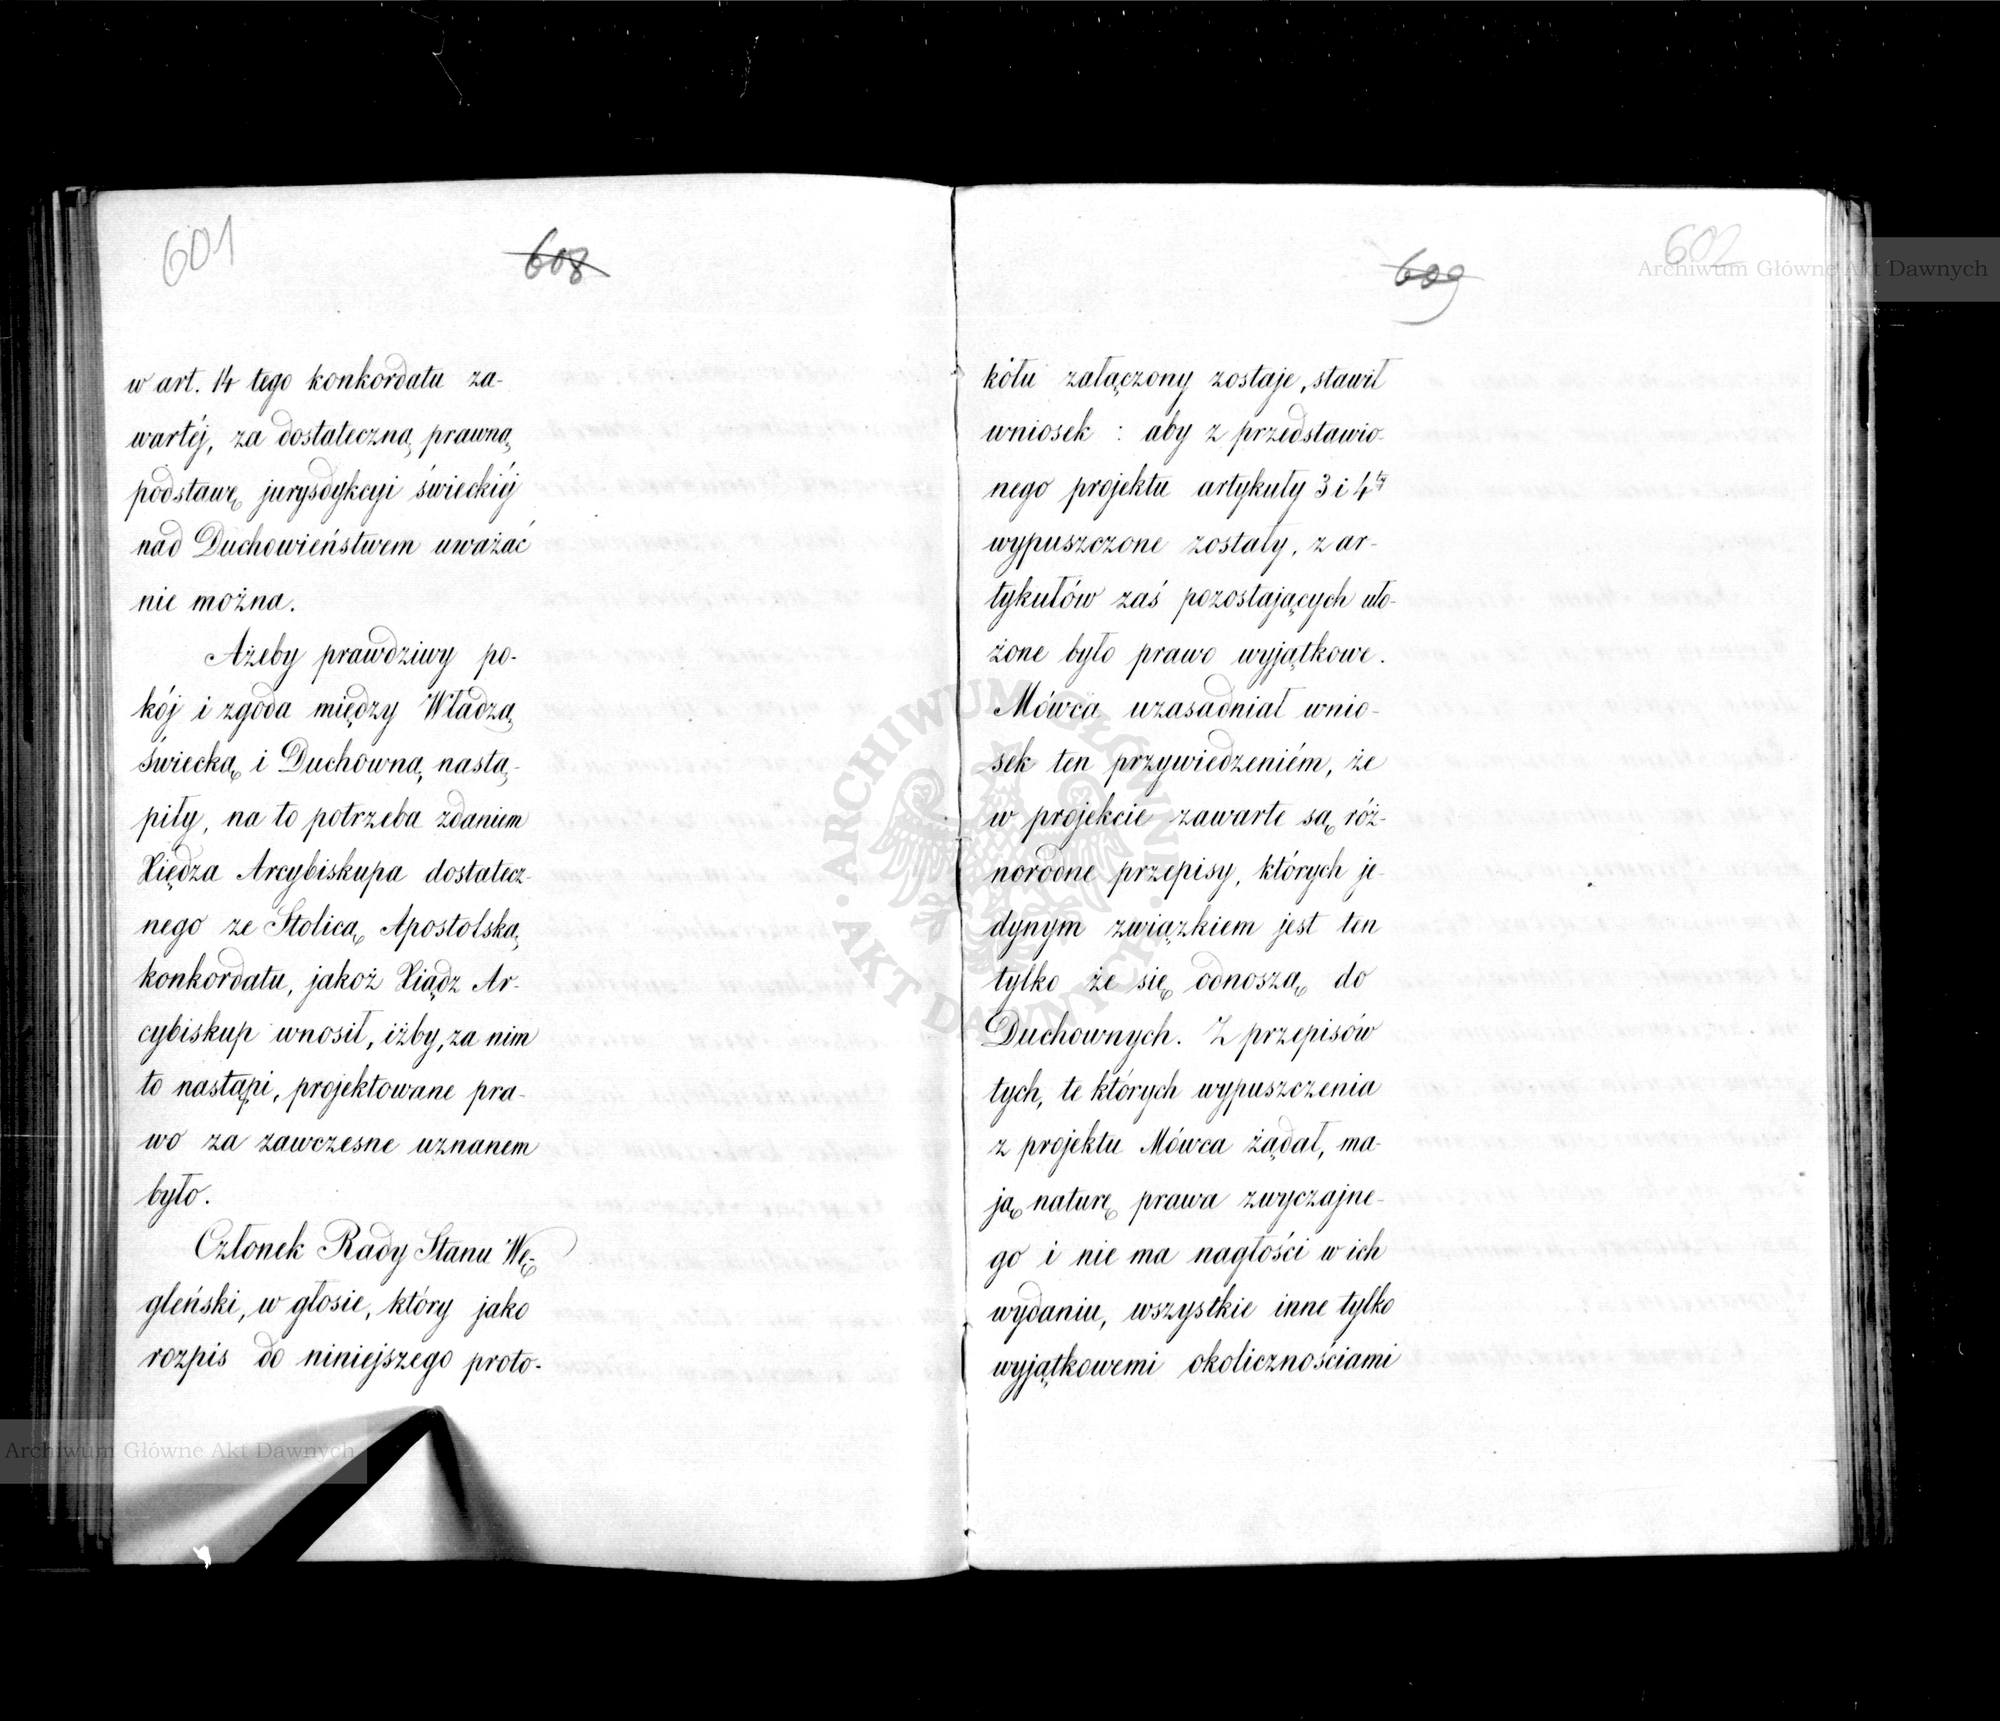 601
608
w art. 14 tego konkordatu za-
wartéj, za dostateczną prawną
podstawę jurysdykcyi świeckiéj
nad Duchowieństwem uważać
nie można.
Ażeby prawdziwy po-
kój i zgoda między Władzą
świecką i Duchowną nastą-
piły, na to potrzeba zdaniem
Xiędza Arcybiskupa dostatecz-
nego ze Stolicą Apostolską
konkordatu, jakoż Xiądz Ar-
cybiskup wnosił, iżby, za nim
to nastąpi, projektowane pra-
wo za zawczesne uznanem
było.
Członek Rady Stanu Wę-
gleński, w głosie, który jako
rozpis do niniejszego proto-
602
609
kółu załączony zostaje, stawił
wniosek : aby z przedstawio-
nego projektu artykuły 3 i 4ty
wypuszczone zostały, z ar-
tykułów zaś pozostających uło-
żone było prawo wyjątkowe.
Mówca uzasadniał wnio-
sek ten przywiedzeniém, że
w projekcie zawarte są róż-
norodne przepisy, których je-
dynym związkiem jest ten
tylko że się odnoszą do
Duchownych. Z przepisów
tych, te których wypuszczenia
z projektu Mówca żądał, ma-
ją naturę prawa zwyczajne-
go i nie ma nagłości w ich
wydaniu, wszystkie inne tylko
wyjątkowemi okolicznościami
Archiwum Główne Akt Dawnych
Archiwum Główne Akt Dawnych
ARCHIWUM GŁÓWNE AKT DAWNYCH